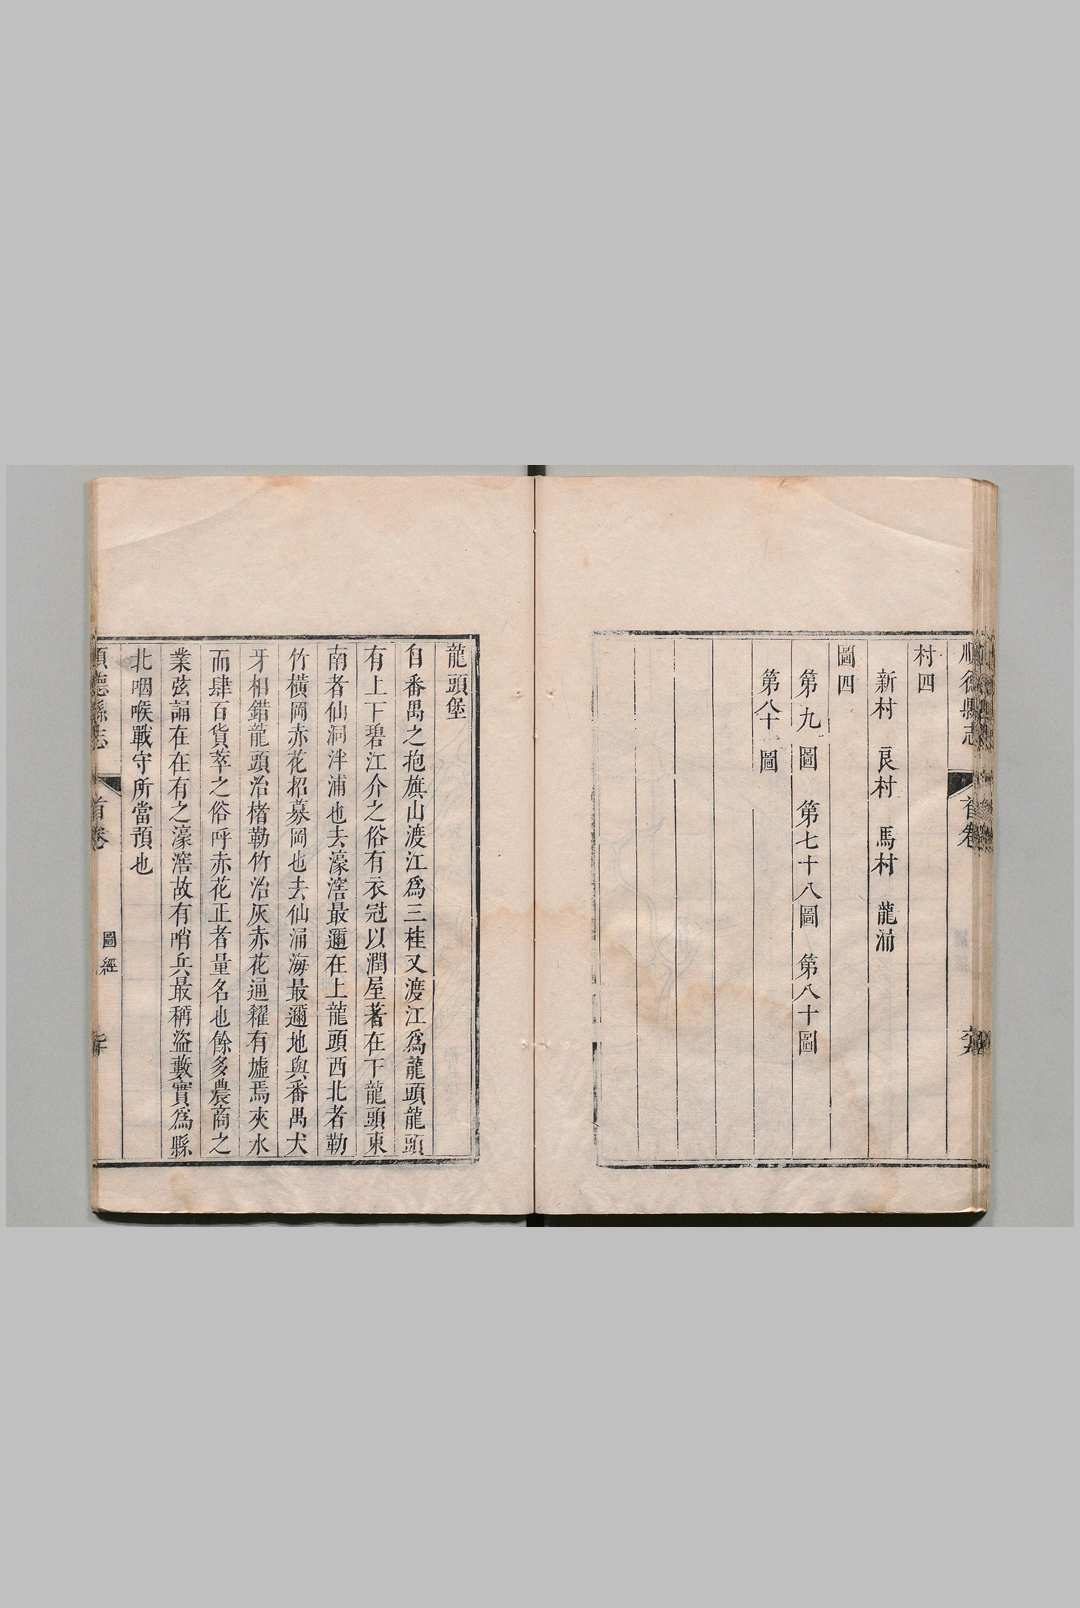 順德縣志 首卷
村四
新村 良村 馬村 龍涌
圖四
第九圖 第七十八圖 第八十圖
第八十一圖
龍頭堡
自番禺之抱旗山渡江爲三桂又渡江爲龍頭龍頭
有上下碧江介之俗有衣冠以潤屋著在下龍頭東
南者仙洞泮浦也去濠滘最邇在上龍頭西北者勒
竹橫岡赤花招募岡也去仙涌海最邇地與番禺犬
牙相錯龍頭治楮勒竹治灰赤花通糴有墟焉夾水
而肆百貨萃之俗呼赤花正者量名也餘多農商之
業弦誦在在有之濠滘故有哨兵最稱盜藪實爲縣
北咽喉戰守所當預也
順德縣志 首卷 圖經